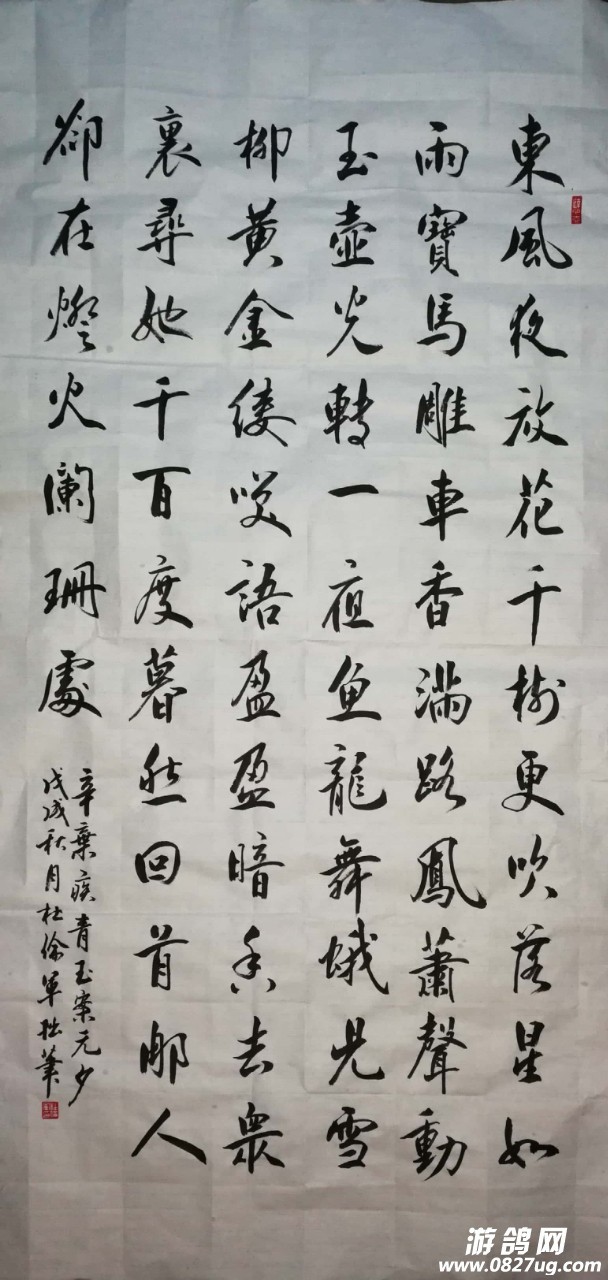 東風夜放花千樹更吹落星如
雨寶馬雕車香滿路鳳蕭聲動
玉壺光轉一夜鱼龍舞蛾兒雪
柳黃金縷笑語盈盈暗香去眾
裏尋她千百度暮然回首那人
卻在燈火瀾珊處
辛棄疾青玉案元夕
戊戌秋月杜軍拙筆
游鸽网
www.0827ug.com